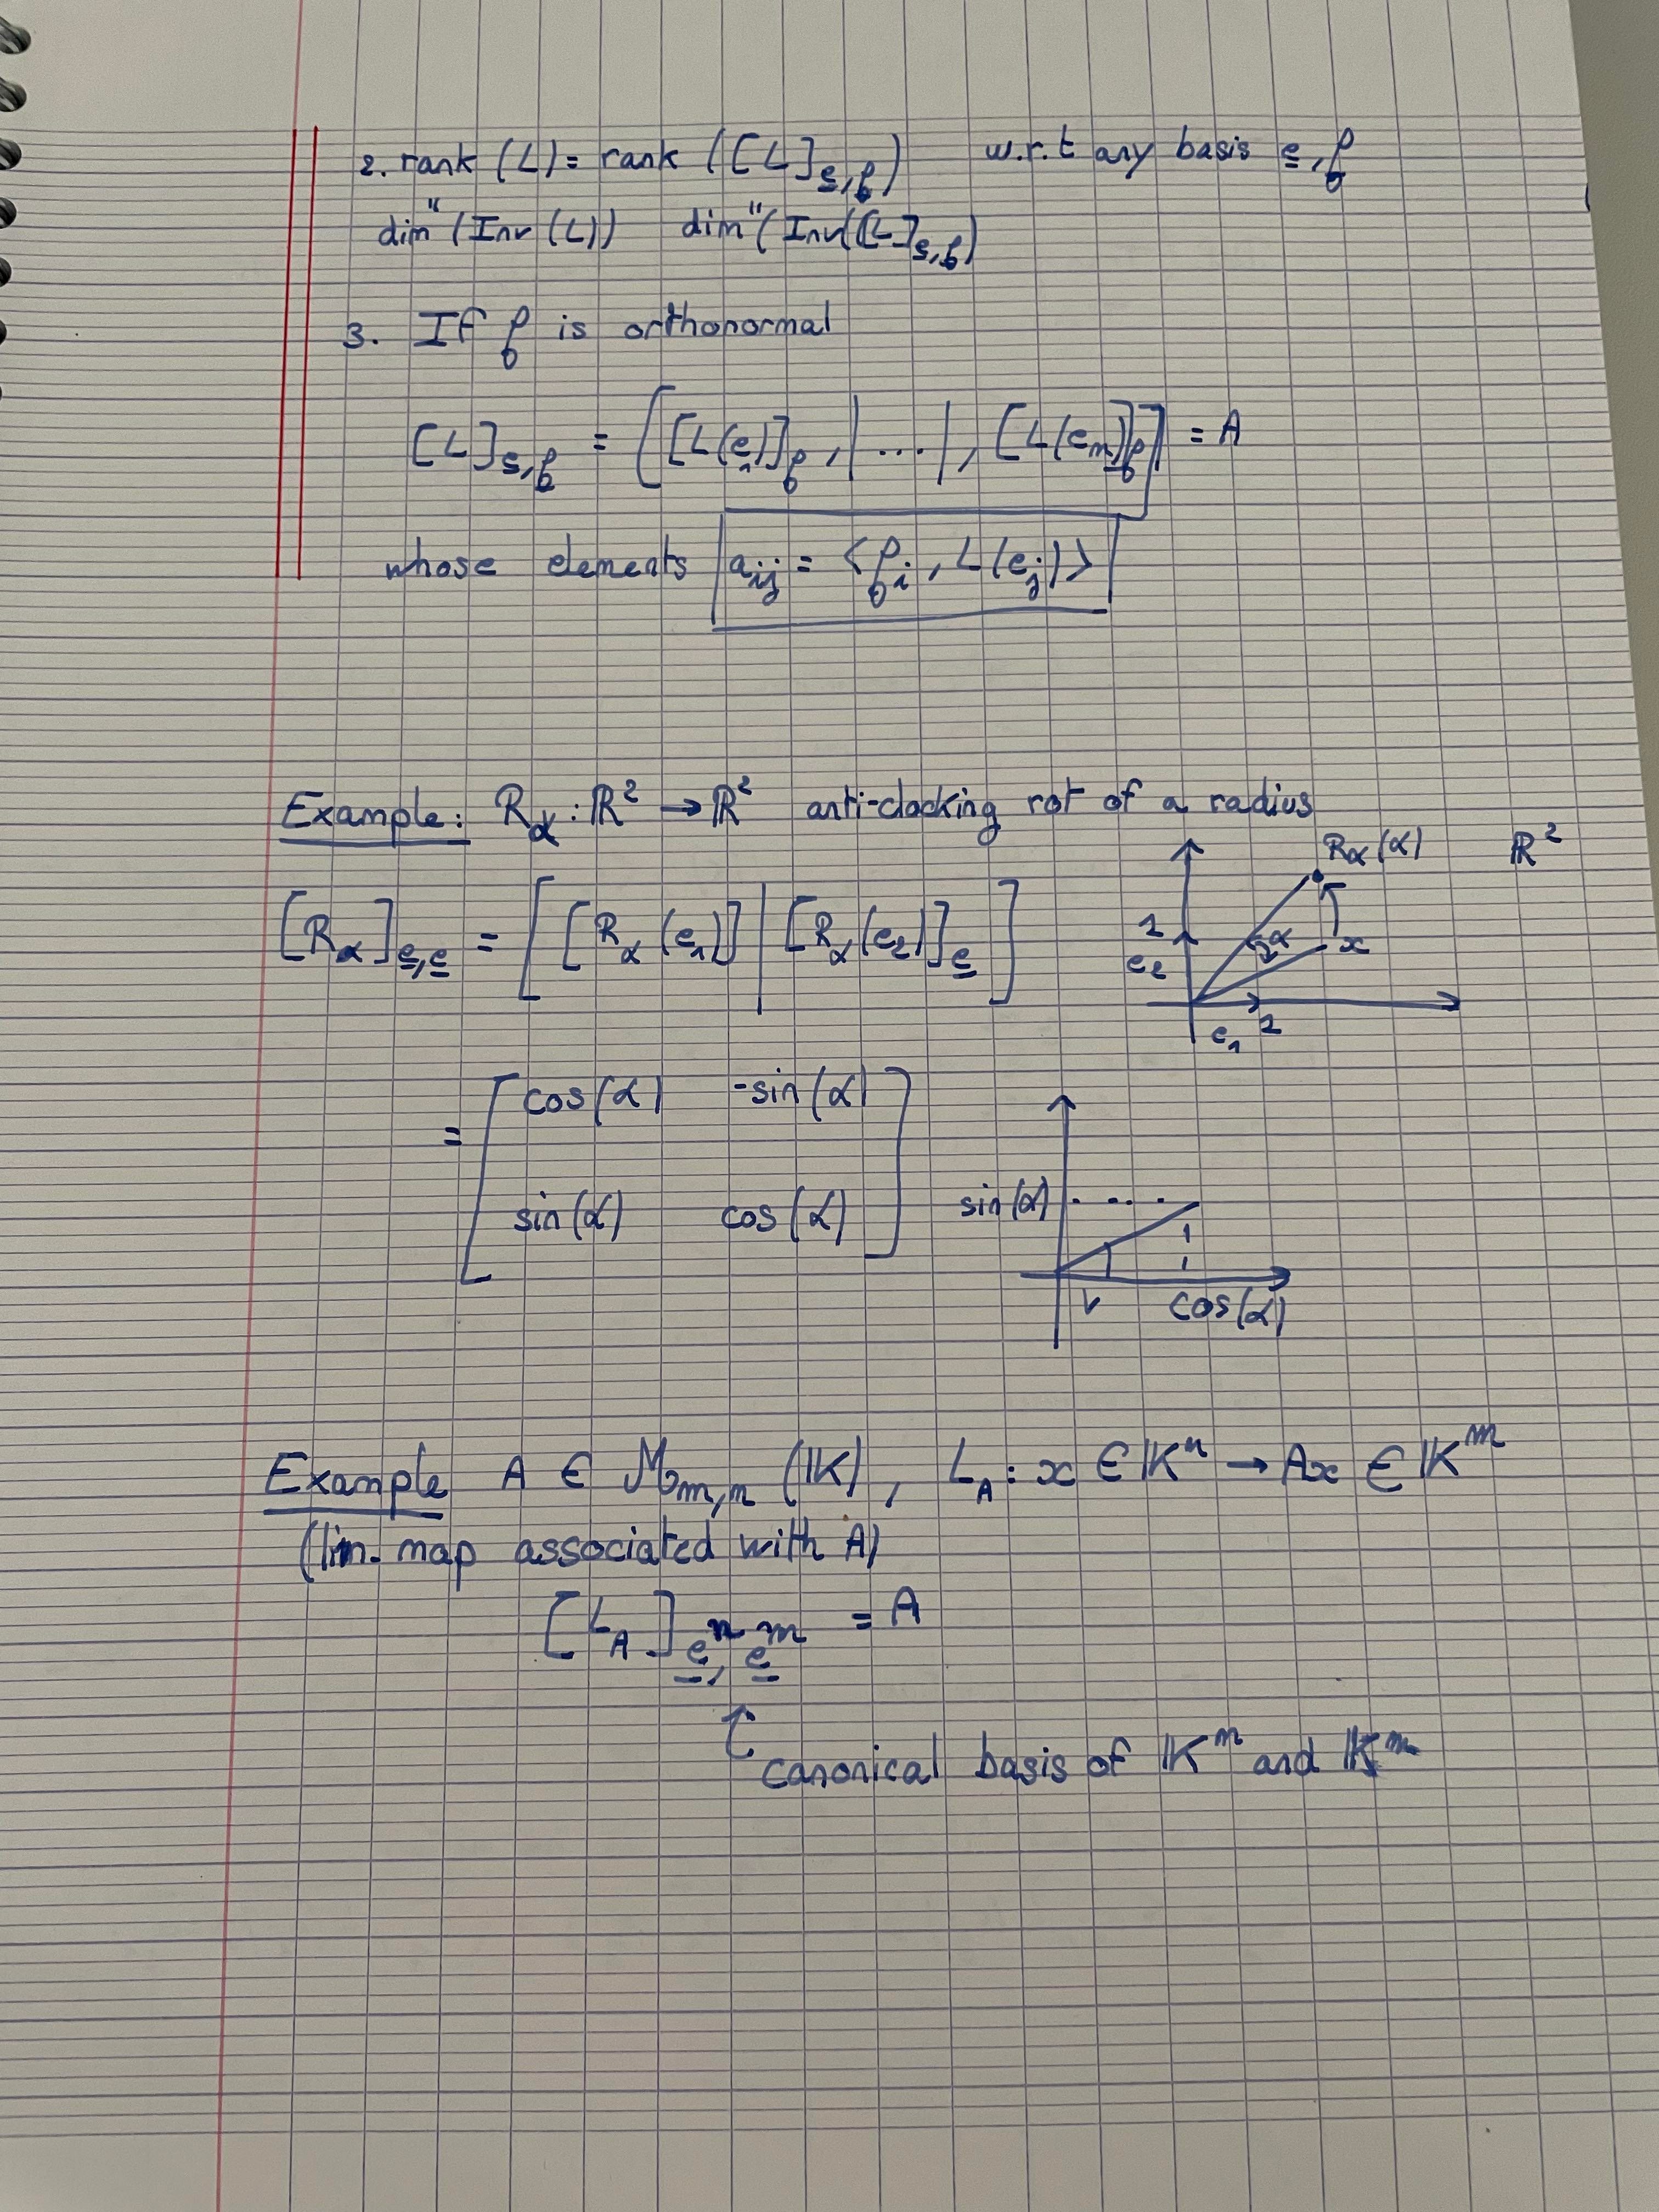 2. rank (L) = rank ([L]e,f) w.r.t any basis e, f
" "
dim (Inv (L)) dim (Inv([L]e,f)
3. If f is orthonormal
[L]e,f = [[L(e1)]f, | ... |, [L(en)]f] = A
whose elements aij = <fi, L(ej)>
Example: Rα : ℝ² → ℝ² anti-clocking rot of α radius
Rα(α) ℝ²
[Rα]e,e = [[Rα(e1)] | [Rα(e2)]e]
1
e2
α
x
e1 2
= [cos(α) -sin(α)
sin(α) cos(α)]
sin(α)
cos(α)
Example A ∈ Mm,n (𝕂), LA : x ∈ 𝕂ⁿ → Ax ∈ 𝕂ᵐ
(lin. map associated with A)
[LA]eⁿ, eᵐ = A
canonical basis of 𝕂ⁿ and 𝕂ᵐ